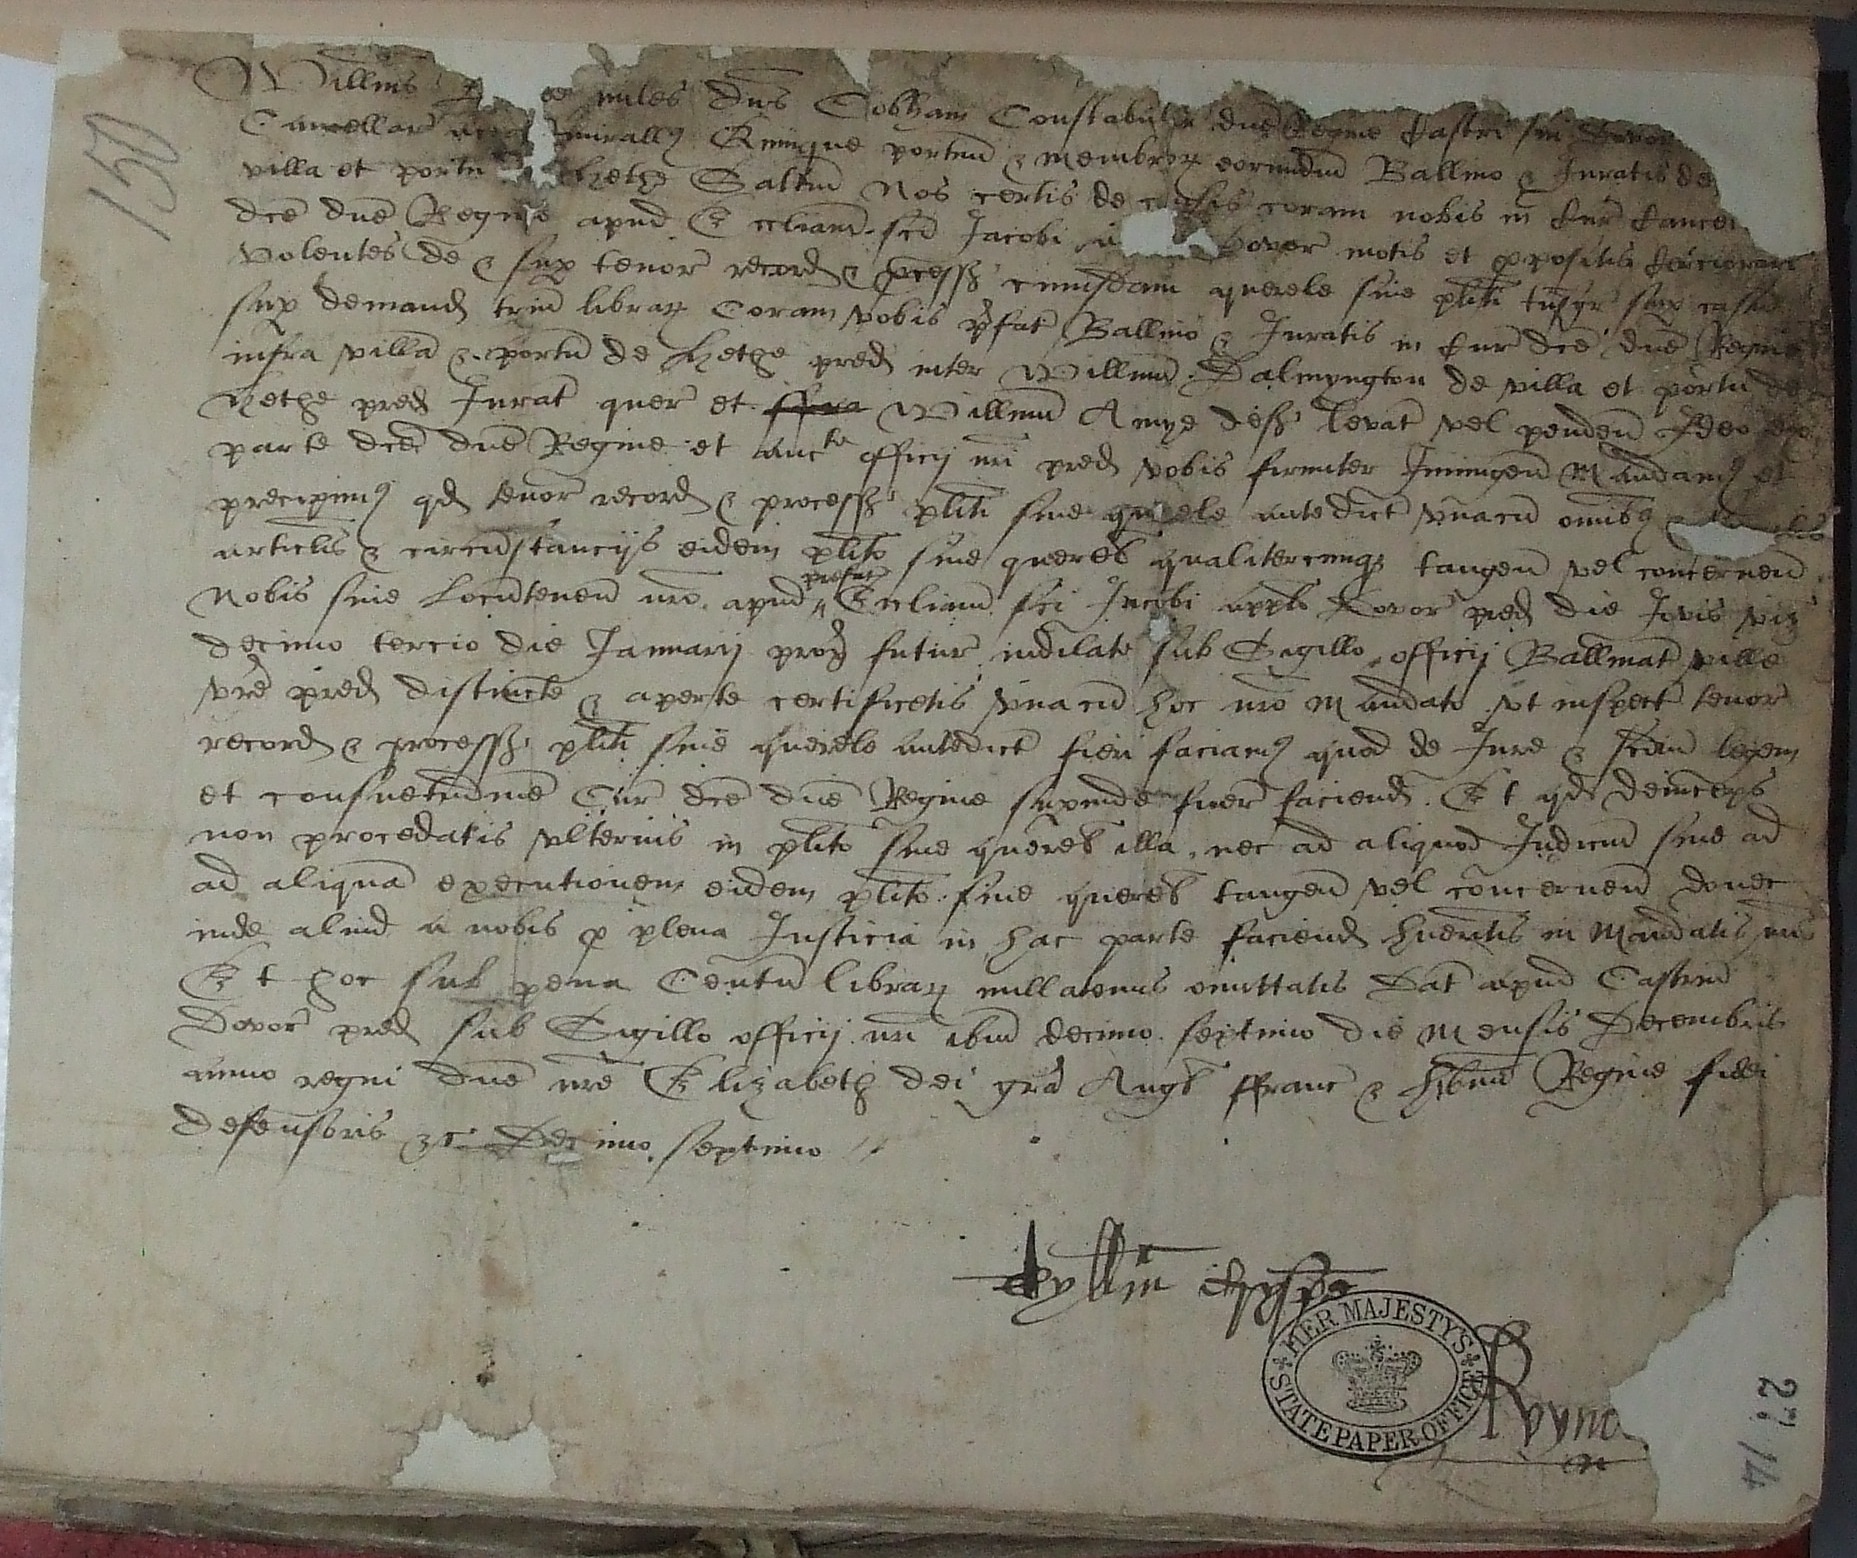 Willms miles dns Cobham Constabular dne Regine Castri sui Dovor
Cancellar Quinque portuu & membror eorundem Ballivo & Juratis de
villa et portu Hethe Saltm Nos certis de causis coram nobis in Cur Cancel
dce dne Regine apud Eccliam sci Jacobi Dovor motis et ppositis Cerciorari
volentes de & sup tenor record & pcess cuiusdam querele sive pliti tnsgr sup casu
sup demand triu librar Coram vobis pfat Ballivo & Juratis in Cur dce dne Regine
infra villa & portu de Hethe pred inter Willmm Dalmyngton de villa et portu de
Hethe pred Jurat quer et Willmm Amye defs levat vel penden Ideo ex
parte dce dne Regine et aucte officij nri pred vobis firmiter Iniungen Mandam9 et
precipim9 qd tenor record & process pliti sive querele antedict vnacu omib9 &
articlis & circumstancijs eidem plito sive querel qualitercumq3 tangen vel concernen
Nobis sive Locutenen nro apud prefat Eccliam sci Jacobi appli Dovor pred die Jovis viz
decimo tercio die Januarij prox futur indilate sub Sigillo officij Ballivat ville
vre pred distincte & aperte certificetis vnacu hoc nro Mandato vt inspect tenor
record & process pliti sive querele antedict fieri faciam9 quod de Jure & scdm legem
et consuetudine Cur dce dne Regine supinde fuer faciend. Et qd deinceps
non procedatis vlterius in plito sive querel illa, nec ad aliquod Judiciu sive ad
ad aliqua executionem eidem plito sive querel tangen vel concernen donec
inde aliud a nobis p plena Justicia in hac parte faciend hueritis in Mandatis
Et hoc sub pena Centu librar nullatenus omittatis Dat apud Castrum
Dovor pred sub Sigillo officij nri ibm decimo septimo die Mensis Decembris
anno regni dne nre Elizabeth dei gra Angl ffranc & hibnie Regine fidei
defensoris &c Decimo septimo //
HER MAJESTY'S STATE PAPER OFFICE
150
27
14